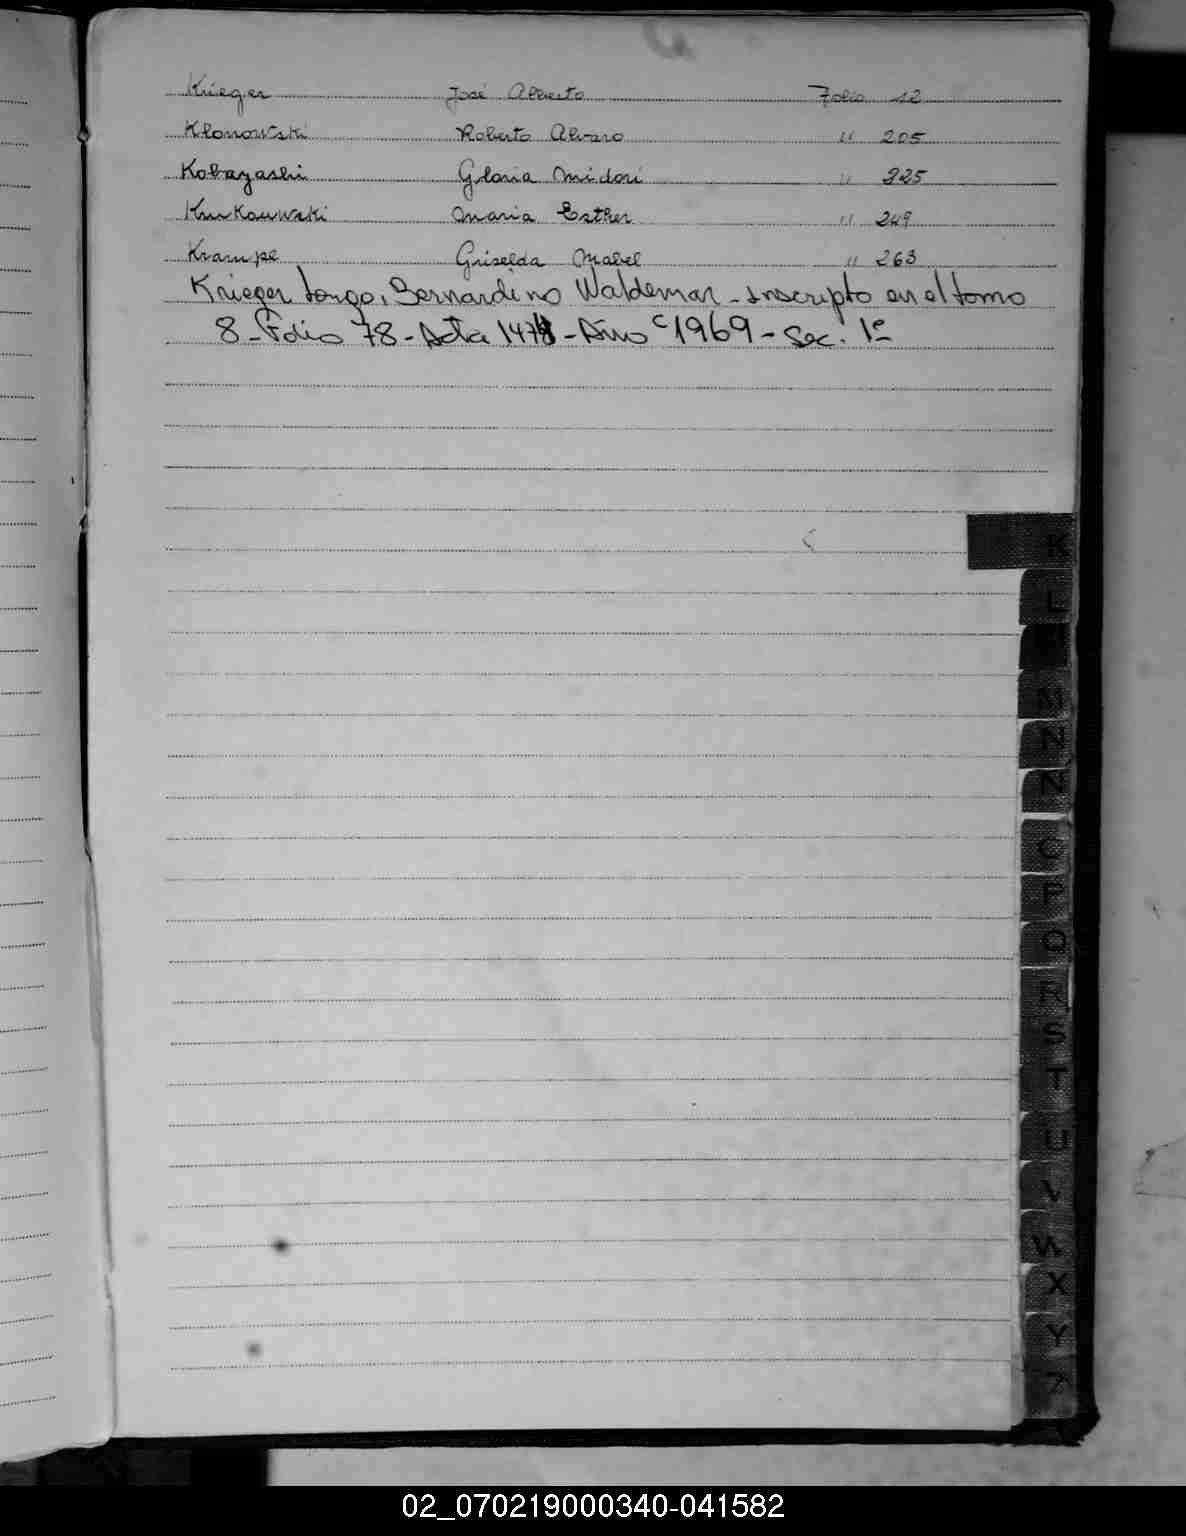 Krieger José Alberto Folio 12
Klonowski Roberto Alvaro " 205
Kobayashi Gloria Midori " 225
Maria Esther " 249
Krampe Griselda Mabel " 263
Krieger Bernardino Waldemar - Inscripto en el tomo
8 - Folio 78 - Acta - Año 1969 - Sec. 1ª
K
L
M
N
N
O
P
Q
R
S
T
U
V
W
X
Y
Z
02_070219000340-041582